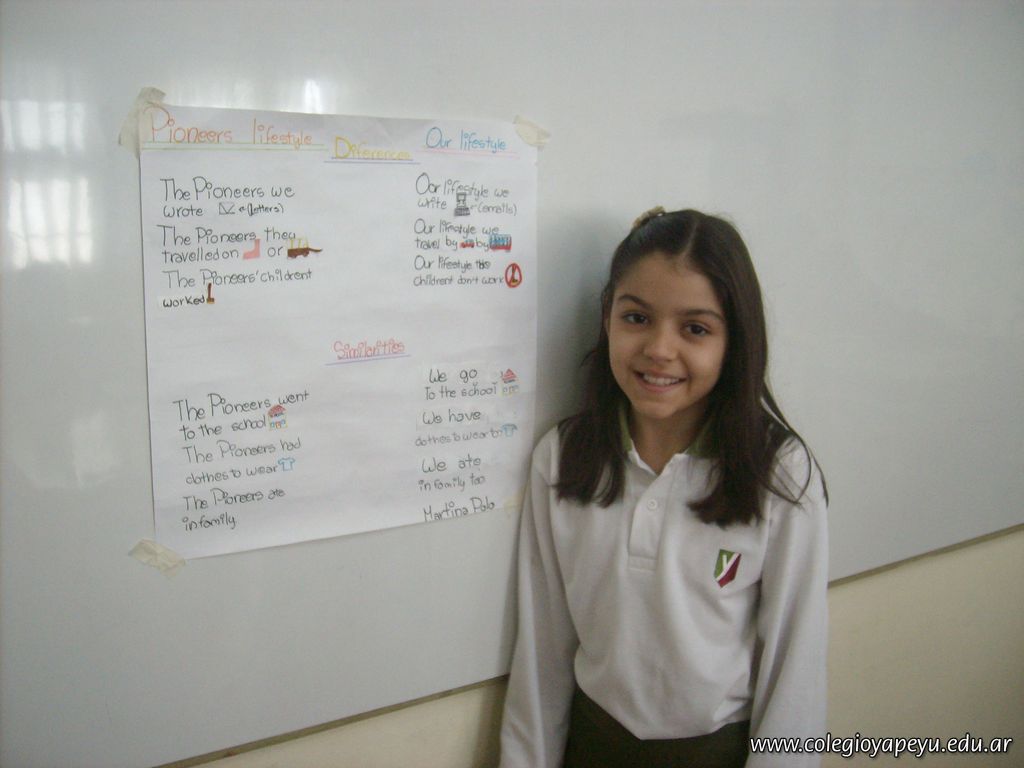 Pioneers lifestyle
Diferences
Our lifestyle
The Pioneers we
wrote (letters)
The Pioneers they
travelled on or
The Pioneers' children
worked
Oor lifestyle we
write (emails)
Our lifestyle we
travel by by
Our lifestyle the
children don't work
Similarities
The Pioneers went
to the school
The Pioneers had
clothes to wear
The Pioneers ate
in family.
We go
To the school
We have
clothes to wear too
We ate
in family too
Martina Polo
y
www.colegioyapeyu.edu.ar